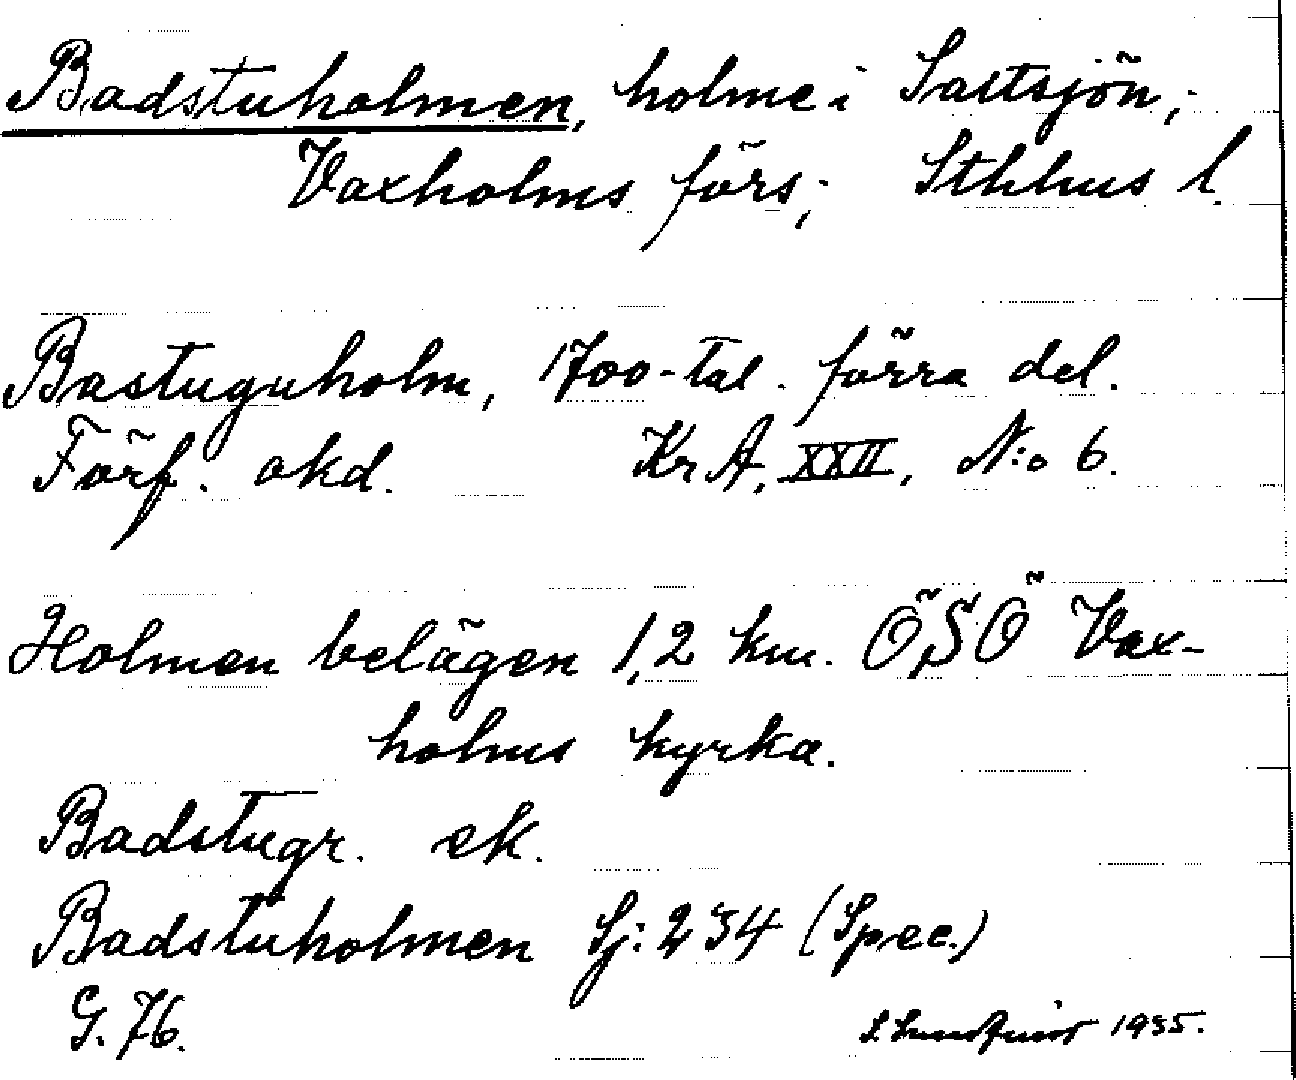 Badstuholmen, holme i Saltsjön,;
Vaxholms förs,; Sthlms l.
Bastuguholm, 1700-tal. förra del.
Förf. okd. Kr A, XXII, N:o 6.
Holmen belägen 1,2 km. ÖSÖ Vax-
holms kyrka.
Badstugr. ek.
Badstuholmen Sj: 234 (Spec.)
G. 76.
S. Lundquist 1935.